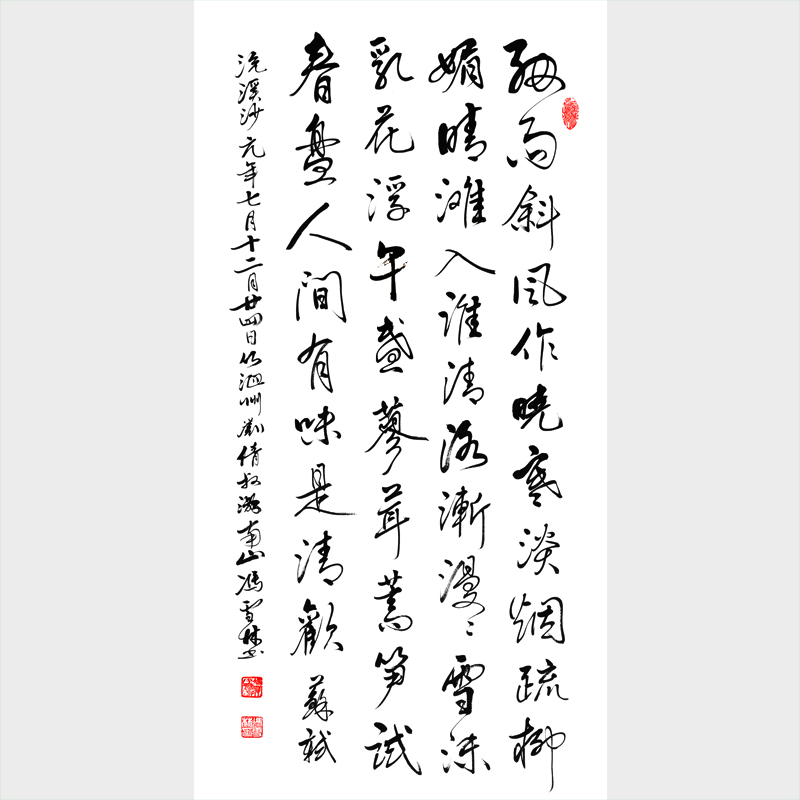 細雨斜風作曉寒淡烟疏柳
媚晴灘入淮清洛漸漫〻雪沫
乳花浮午盞蓼茸蒿筍試
春盤人間有味是清歡 蘇軾
浣溪沙元年七月十二月廿四日從泗州劉倩叔游南山馮雪林书